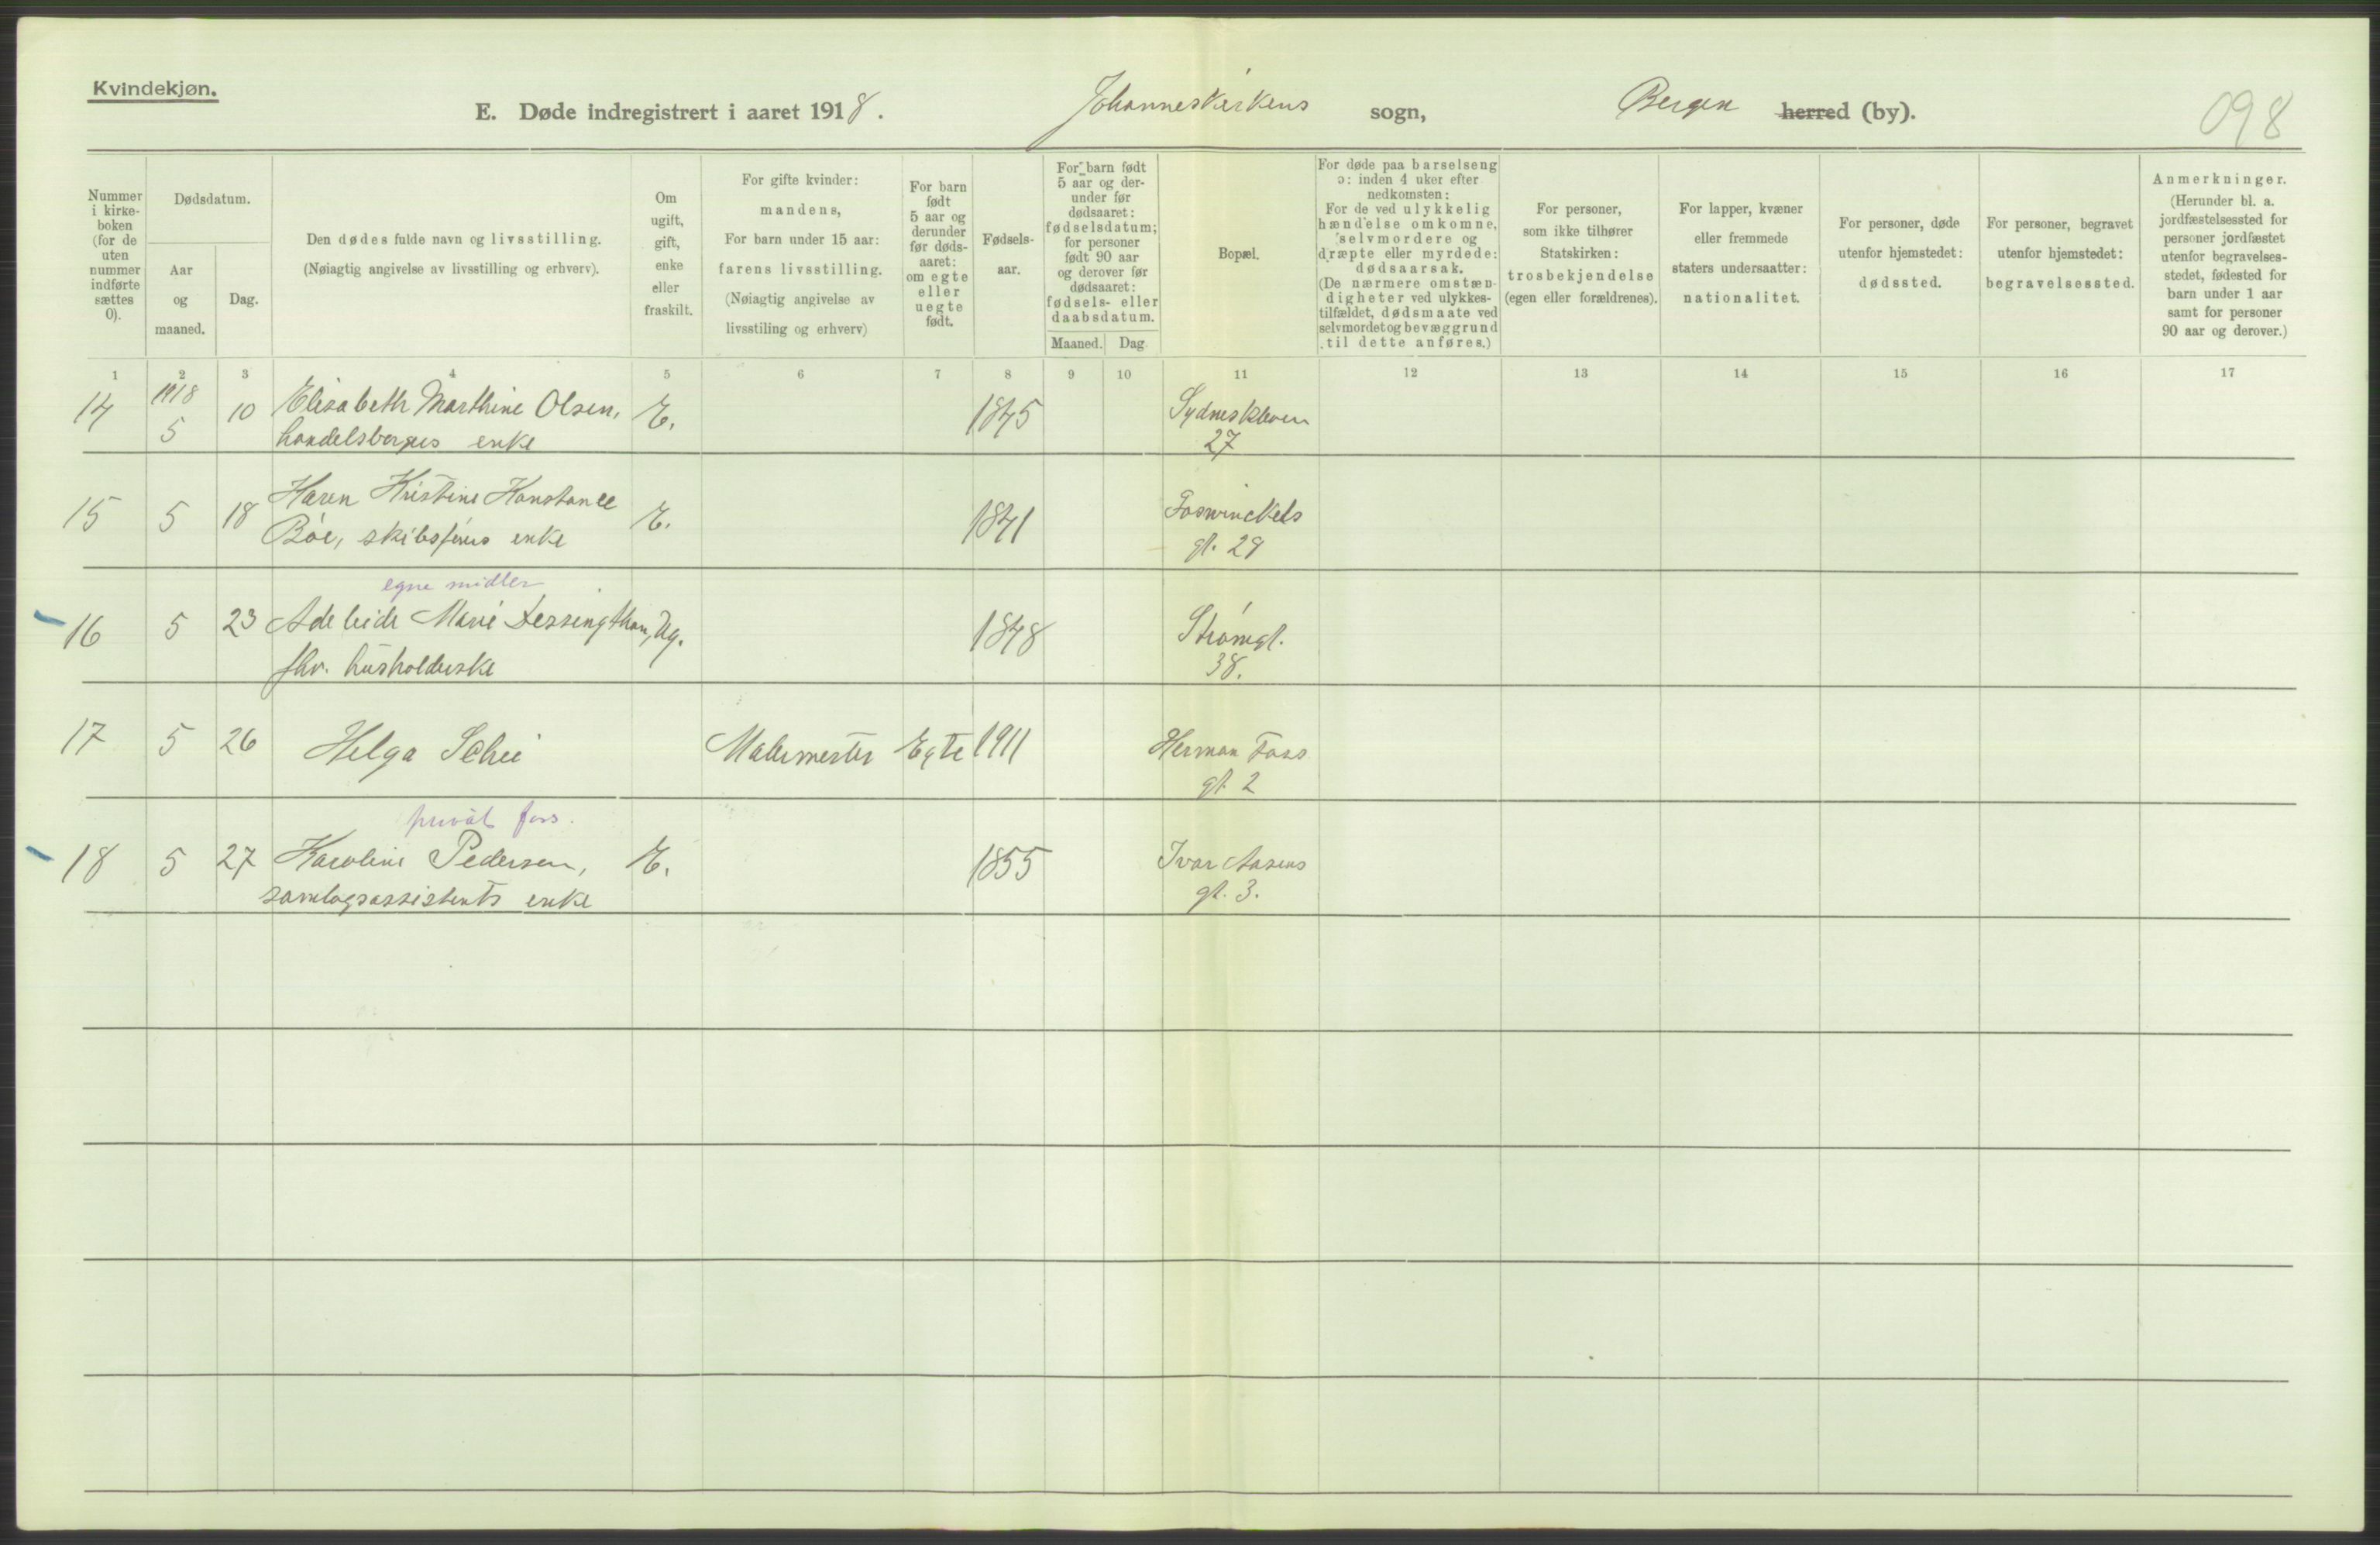 Kvindekjøn.
E. Døde indregistrert i aaret 1918. Johanneskirkens sogn, Bergen herred (by).
098
Nummer i kirkeboken (for de uten nummer indførte sættes 0).
Dødsdatum.
Aar og maaned.
Dag.
Den dødes fulde navn og livsstilling.
(Nøiagtig angivelse av livsstilling og erhverv).
Om ugift, gift, enke eller fraskilt.
For gifte kvinder: mandens,
For barn under 15 aar: farens livsstilling.
(Nøiagtig angivelse av livsstiling og erhverv)
For barn født 5 aar og derunder før dødsaaret: om egte eller uegte født.
Fødselsaar.
For barn født 5 aar og derunder før dødsaaret: fødselsdatum; for personer født 90 aar og derover før dødsaaret: fødsels- eller daabsdatum.
Maaned. Dag.
Bopæl.
For døde paa barselseng ɔ: inden 4 uker efter nedkomsten:
For de ved ulykkelig hændelse omkomne, selvmordere og dræpte eller myrdede: dødsaarsak.
(De nærmere omstændigheter ved ulykkestilfældet, dødsmaate ved selvmordet og bevæggrund til dette anføres.)
For personer, som ikke tilhører Statskirken: trosbekjendelse (egen eller forældrenes).
For lapper, kvæner eller fremmede staters undersaatter: nationalitet.
For personer, døde utenfor hjemstedet: dødssted.
For personer, begravet utenfor hjemstedet: begravelsessted.
Anmerkninger.
(Herunder bl. a. jordfæstelsessted for personer jordfæstet utenfor begravelsesstedet, fødested for barn under 1 aar samt for personer 90 aar og derover.)
1 2 3 4 5 6 7 8 9 10 11 12 13 14 15 16 17
1918
14 5 10 Elisabeth Marthine Olsen, E. 1845 Sydneskleven
handelsborgers enke 27
15 5 18 Karen Kristine Konstance E. 1841 Foswinckels
Böe, skibsförers enke gt. 29
egne midler
16 5 23 Adeleide Marie Lessingthon, Ug. 1848 Strömgt.
fhv. husholderske 38.
17 5 26 Helga Schei Malermester Egte 1911 Herman Foss
gt. 2
privat fors.
18 5 27 Karoline Pedersen, E. 1855 Ivar Aasens
samlagsassistents enke gt. 3.